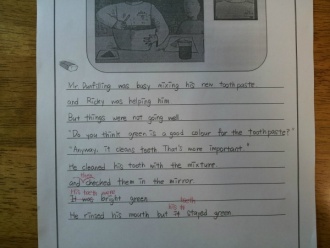 Mr Dunfilling was busy mixing his new toothpaste
and Ricky was helping him
But things were not going well
"Do you think green is a good colour for the toothpaste?"
"Anyway, it cleans teeth That's more important"
He cleaned his tooth with the mixture
and checked them in the mirror
His tooth paste
It was bright green
teeth
He rinsed his mouth but it stayed green